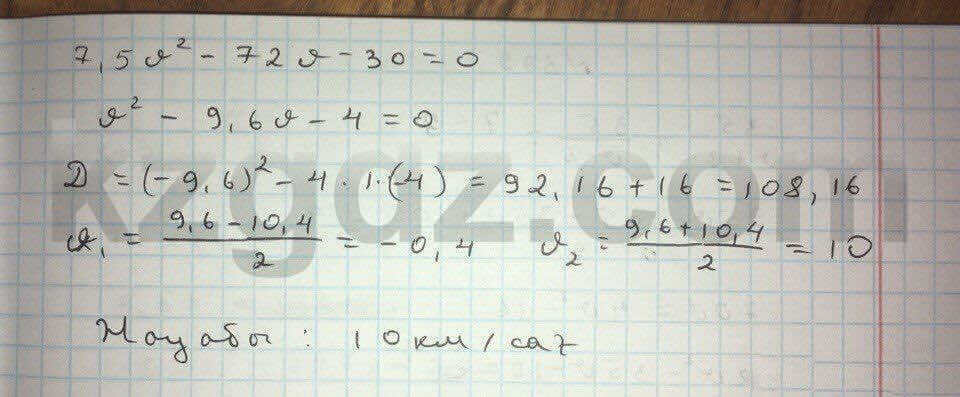 7,5v² - 72v - 30 = 0
v² - 9,6v - 4 = 0
D = (-9,6)² - 4·1·(-4) = 92,16 + 16 = 108,16
v₁ = (9,6 - 10,4)/2 = -0,4 v₂ = (9,6 + 10,4)/2 = 10
: 10 км/сағ
kzgdz.com